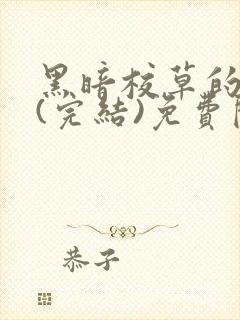 黑暗校草的
(完結)免費
恭子